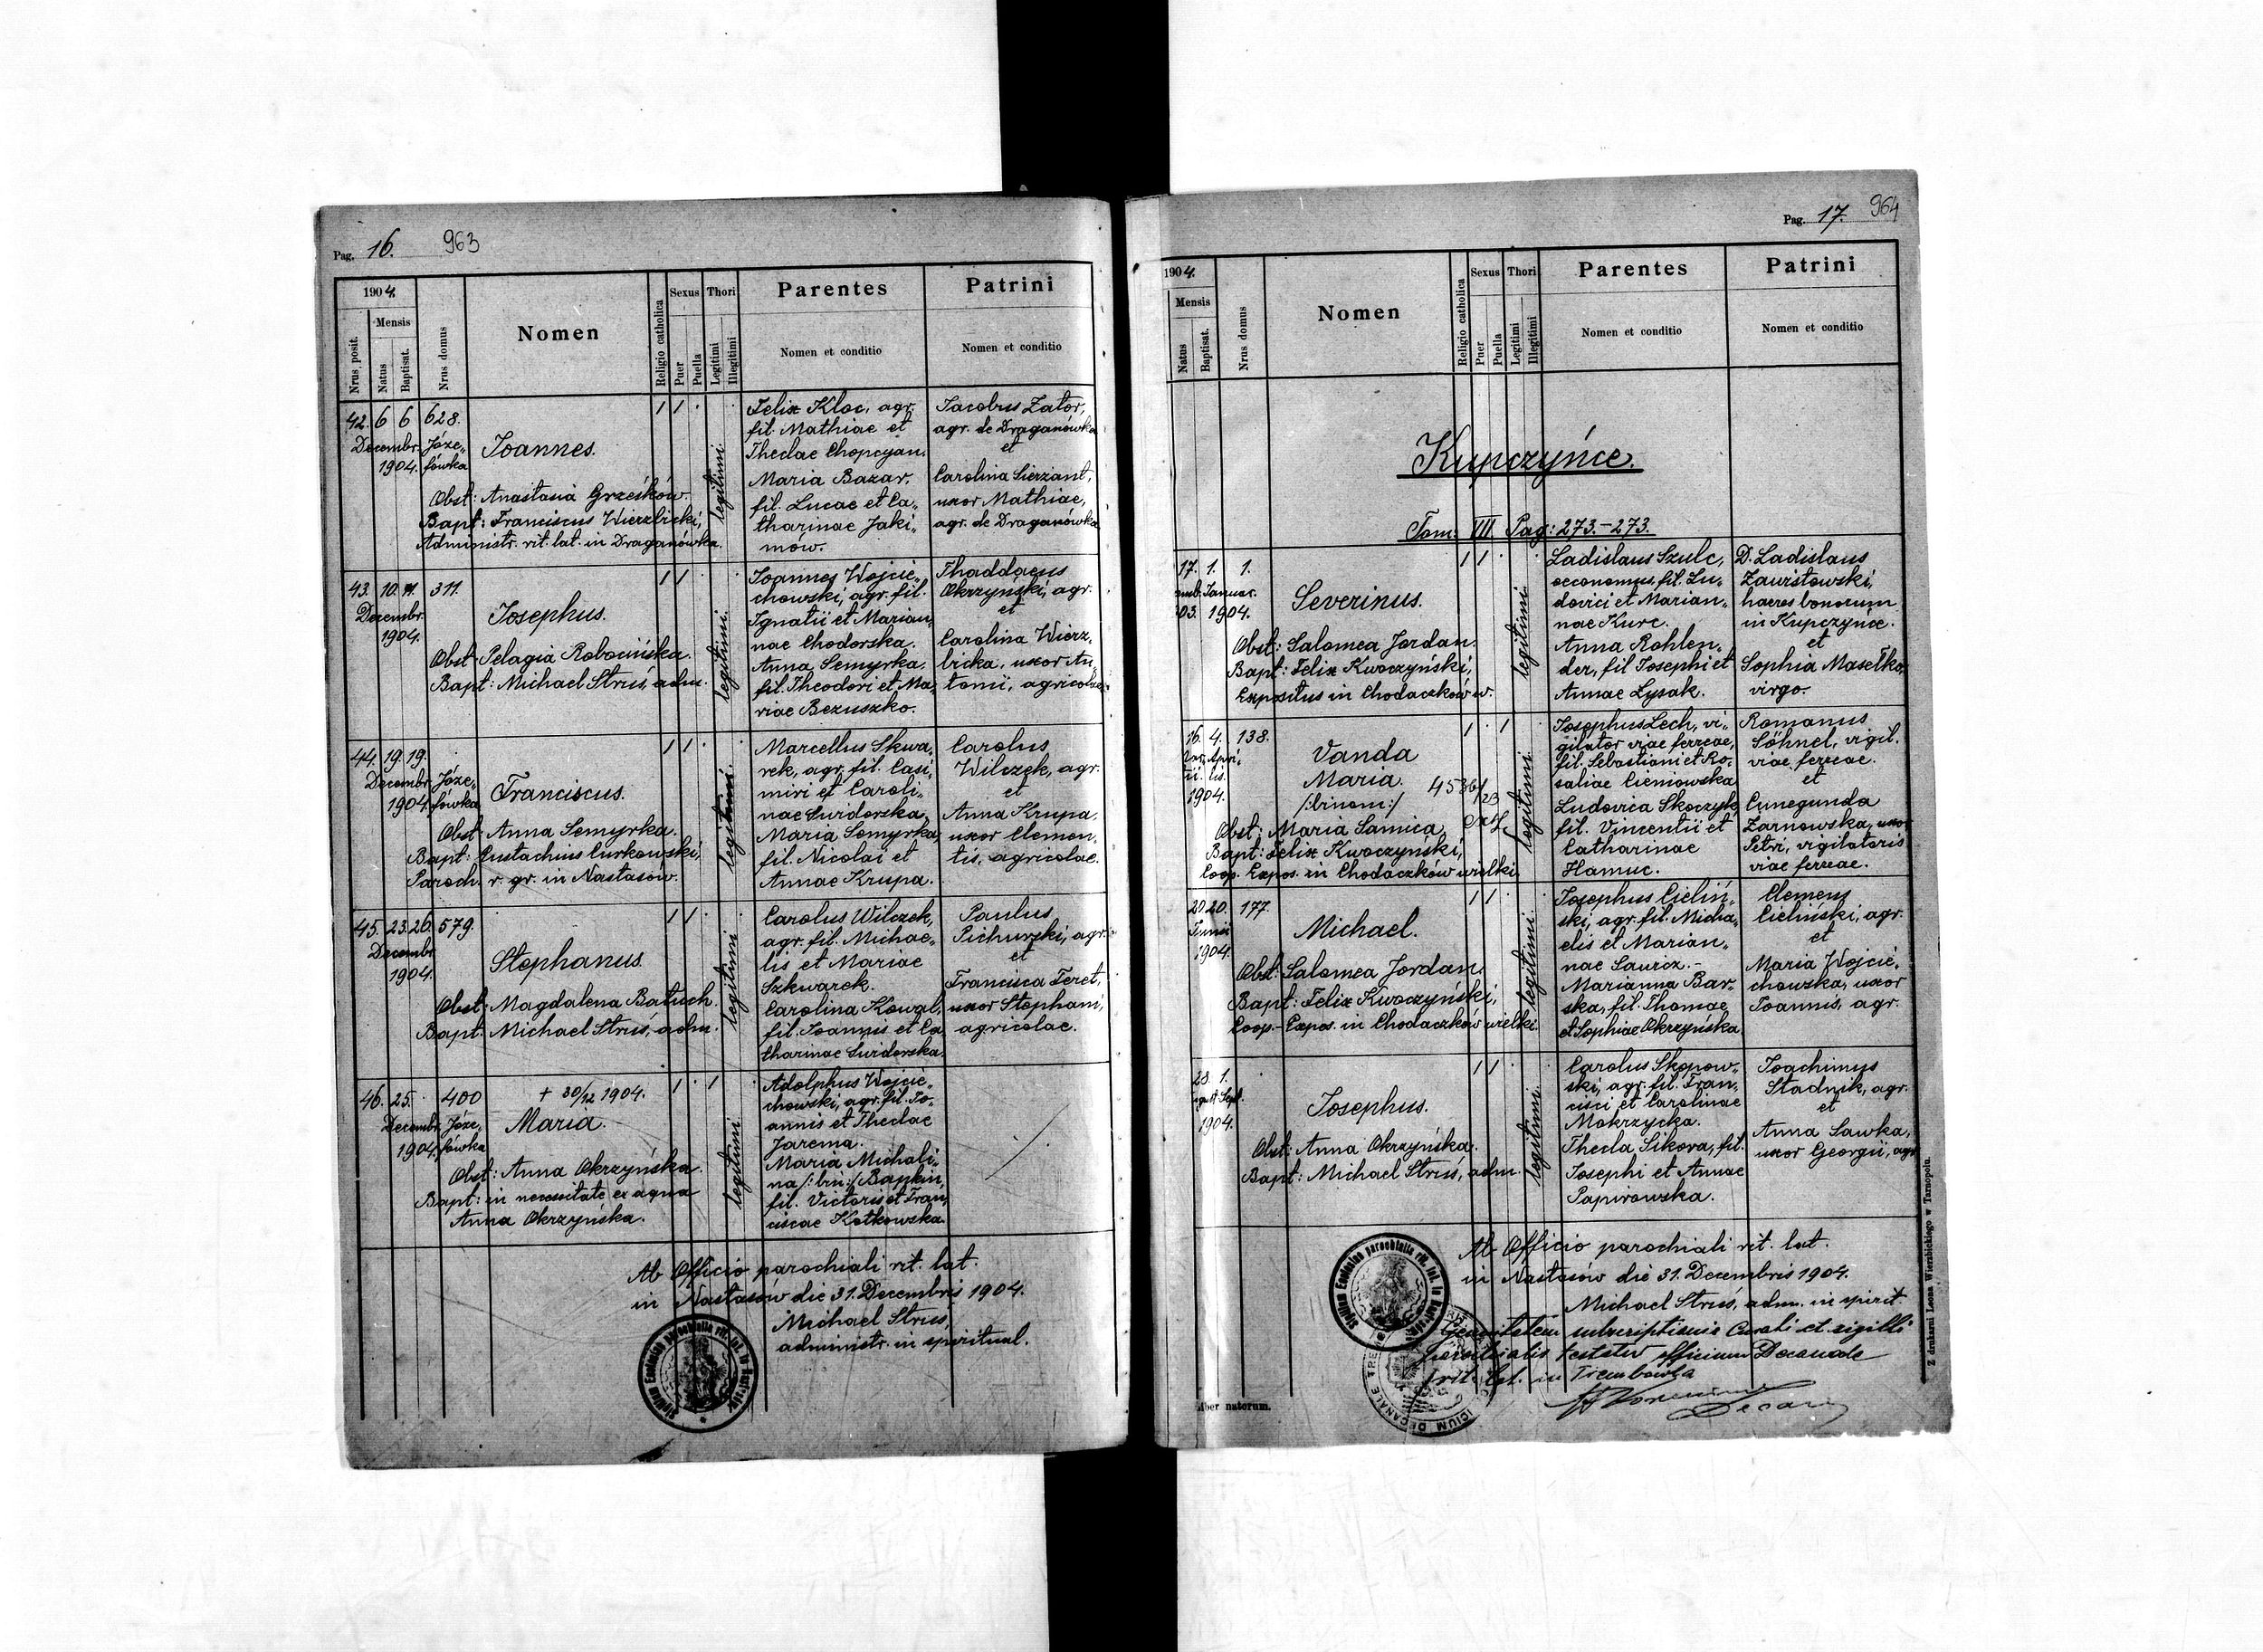 Pag. 16. 963
1904.
Nrus posit.
Mensis
Natus
Baptisat.
Nrus domus
Nomen
Religio catholica
Sexus
Puer
Puella
Thori
Legitimi
Illegitimi
Parentes
Nomen et conditio
Patrini
Nomen et conditio
42. 6 6 628.
Decembr. Józe„
1904. fówka
Joannes.
Obst: Anastasia Grzesków.
Bapt: Franciscus Wierzbicki,
Administr. rit. lat. in Draganówka.
legitimi.
Felix Kloc, agr.
fil. Mathiae et
Theclae Chopcyan.
Maria Bazar.
fil. Lucae et Ca„
tharinae Jaki„
mów.
Jacobus Zator,
agr. de Draganówka
et
Carolina Sierżant,
uxor Mathiae,
agr. de Draganówka
43. 10. 11. 311.
Decembr.
1904.
Josephus.
Obst: Pelagia Robocińska.
Bapt: Michael Struś, adm.
legitimi.
Joannes Wojcie„
chowski, agr. fil.
Ignatii et Marian„
nae Chodorska.
Anna Semyrka,
fil. Theodori et Ma„
riae Bezuszko.
Thaddaeus
Okrzyński, agr.
et
Carolina Wierz„
bicka, uxor An„
tonii, agricolae.
44. 19. 19.
Decembr. Józe„
1904. fówka
Franciscus.
Obst: Anna Semyrka.
Bapt: Eustachius Curkowski,
Paroch. r. gr. in Nastasów.
legitimi.
Marcellus Skwa„
rek, agr. fil. Casi„
miri et Caroli„
nae Świderska,
Maria Semyrka,
fil. Nicolai et
Annae Krupa.
Carolus
Wilczek, agr.
et
Anna Krupa,
uxor Clemen„
tis, agricolae.
45. 23. 26. 579.
Decembr.
1904.
Stephanus.
Obst: Magdalena Batuch.
Bapt: Michael Struś, adm.
legitimi
Carolus Wilczek,
agr. fil. Michae„
lis et Mariae
Szkwarek.
Carolina Kowal,
fil. Joannis et Ca„
tharinae Świderska.
Paulus
Pichurski, agr.
et
Francisca Teret,
uxor Stephani,
agricolae.
46. 25. 400
Decembr. Józe„
1904. fówka
+ 30/12 1904.
Maria.
Obst: Anna Okrzyńska.
Bapt: in necessitate ex aqua
Anna Okrzyńska.
legitimi
Adolphus Wojcie„
chowski, agr. fil. Jo„
annis et Theclae
Jarema.
Maria Michali„
na /:bin:/ Bapkin,
fil. Victoris et Fran„
ciscae Kotkowska.
Ab Officio parochiali rit. lat.
in Nastasów die 31. Decembris 1904.
Michael Struś,
administr. in spiritual.
Pag. 17. 964
1904.
Mensis
Natus
Baptisat.
Nrus domus
Nomen
Religio catholica
Sexus
Puer
Puella
Thori
Legitimi
Illegitimi
Parentes
Nomen et conditio
Patrini
Nomen et conditio
Kupczyńce.
Tom. VII Pag: 273.-273.
17. 1. 1.
Januar.
1904.
Severinus.
Obst: Salomea Jordan.
Bapt: Felix Kwoczyński,
Expositus in Chodaczków w.
legitimi.
Ladislaus Szulc,
oeconomus, fil. Lu„
dovici et Marian„
nae Kurc.
Anna Rohlen„
der, fil Josephi et
Annae Łysak.
D. Ladislaus
Zawistowski,
haeres bonorum
in Kupczyńce.
et
Sophia Masełko,
virgo.
16. 4. 138.
Apri„
lis.
1904.
Vanda
Maria.
/:binom:/
4536/23
Obst: Maria Samica,
Bapt: Felix Kwoczyński,
Coop. Expos. in Chodaczków wielki.
legitimi.
Josephus Lech, vi„
gilator viae ferreae,
fil. Sebastiani et Ro„
saliae Cieniowska
Ludovica Skoczyk,
fil. Vincentii et
Catharinae
Hamuc.
Romanus
Söhnel, vigil.
viae ferreae.
et
Cunegunda
Żarnowska, uxor
Petri, vigilatoris
viae ferreae.
20 20. 177.
Junii
1904.
Michael.
Obst: Salomea Jordan.
Bapt: Felix Kwoczyński,
Coop.- Expos. in Chodaczków wielki.
legitimi
Josephus Cieliń„
ski, agr. fil. Micha„
elis et Marian„
nae Saurcz.-
Marianna Bar„
ska, fil. Thomae
et Sophiae Okrzyńska
Clemens
Cieliński, agr.
et
Maria Wojcie„
chowska, uxor
Joannis, agr.
28. 1.
Sept.
1904.
Josephus.
Obst: Anna Okrzyńska.
Bapt: Michael Struś, adm.
legitimi.
Carolus Skopow„
ski, agr. fil. Fran„
cisci et Carolinae
Mokrzycka.
Thecla Sikora, fil.
Josephi et Annae
Papirowska.
Joachimus
Stadnik, agr.
et
Anna Sawka,
uxor Georgii, agr.
Ab Officio parochiali rit. lat.
in Nastasów die 31. Decembris 1904.
Michael Struś, adm. in spirit.
subscriptionis Curati et sigilli
parochialis testatur Officium Decanale
rit. lat. in Trembowla
Decan
Liber natorum.
Z drukarni Leona Wierzbickiego w Tarnopolu.